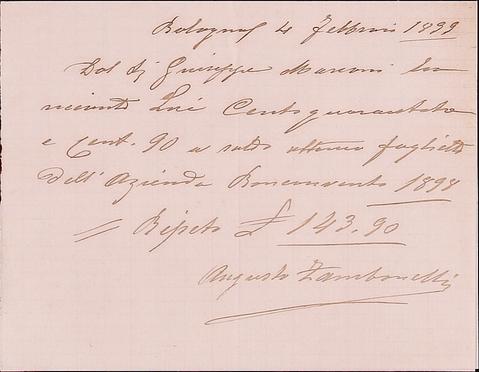 Bologna 4 Febbraio 1899
Dal Sig Giuseppe Marconi ho
ricevuto Lire Centoquarantatre
e Cent. 90 a saldo foglietto
dell'Azienda 1898
Ripeto £ 143.90
Augusto Zambonelli